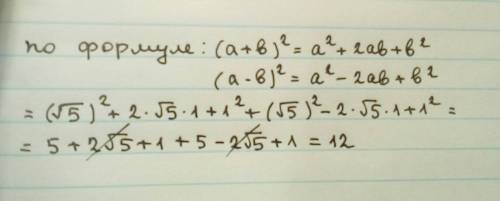 по формуле: (a+b)² = a² + 2ab + b²
(a-b)² = a² - 2ab + b²
= (√5)² + 2·√5·1 + 1² + (√5)² - 2·√5·1 + 1² =
= 5 + 2√5 + 1 + 5 - 2√5 + 1 = 12